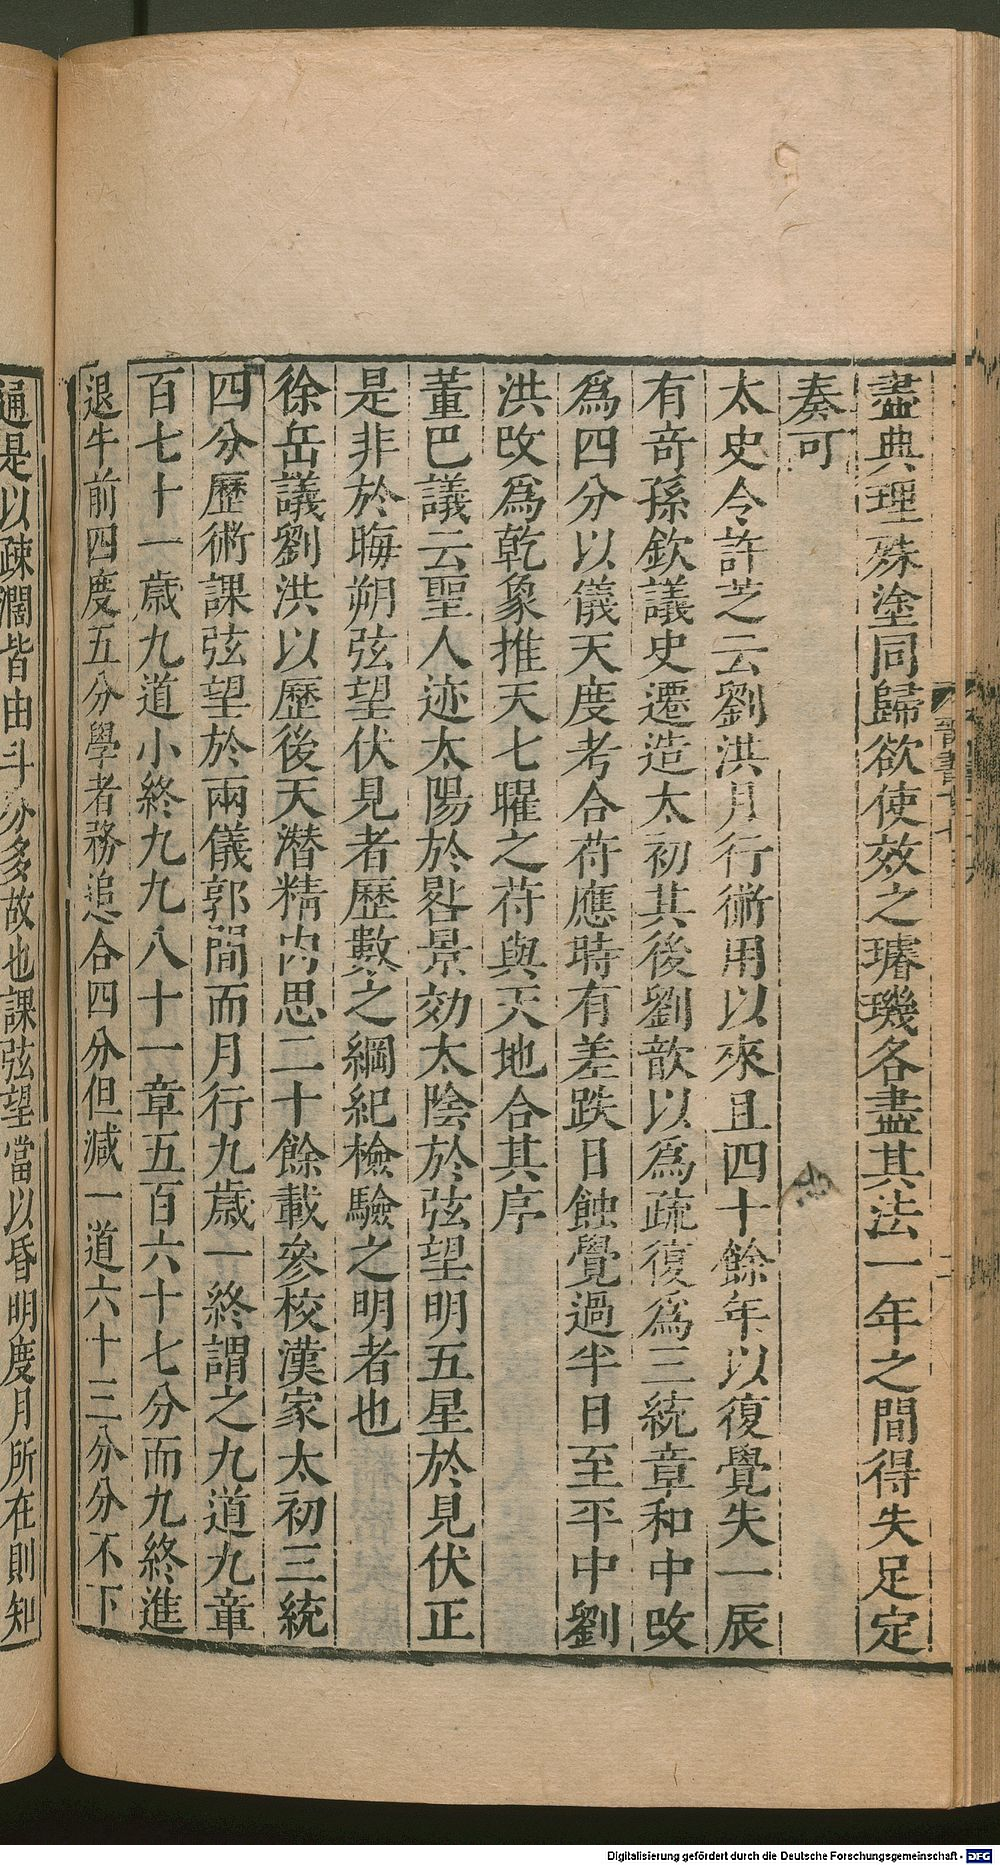 盡典理殊塗同歸欲使效之璿璣各盡其法一年之間得失足定
奏可
太史令許芝云劉洪月行術用以來且四十餘年以復覺失一辰
有奇孫欽議史遷造太初其後劉歆以爲疏復爲三統章和中改
爲四分以儀天度考合符應時有差跌日蝕覺過半日至平中劉
洪改爲乾象推天七曜之符與天地合其序
董巴議云聖人迹太陽於晷景効太陰於弦望明五星於見伏正
是非於晦朔弦望伏見者歷數之綱紀檢驗之明者也
徐岳議劉洪以歷後天潜精內思二十餘載參校漢家太初三統
四分歷術課弦望於兩儀郭間而月行九歲一終謂之九道九章
百七十一歲九道小終九九八十一章五百六十七分而九終進
退牛前四度五分學者務追合四分但減一道六十三分分不下
通是以疎濶皆由斗分多故也課弦望當以昏明度月所在則知
Digitalisierung gefördert durch die Deutsche Forschungsgemeinschaft - DFG